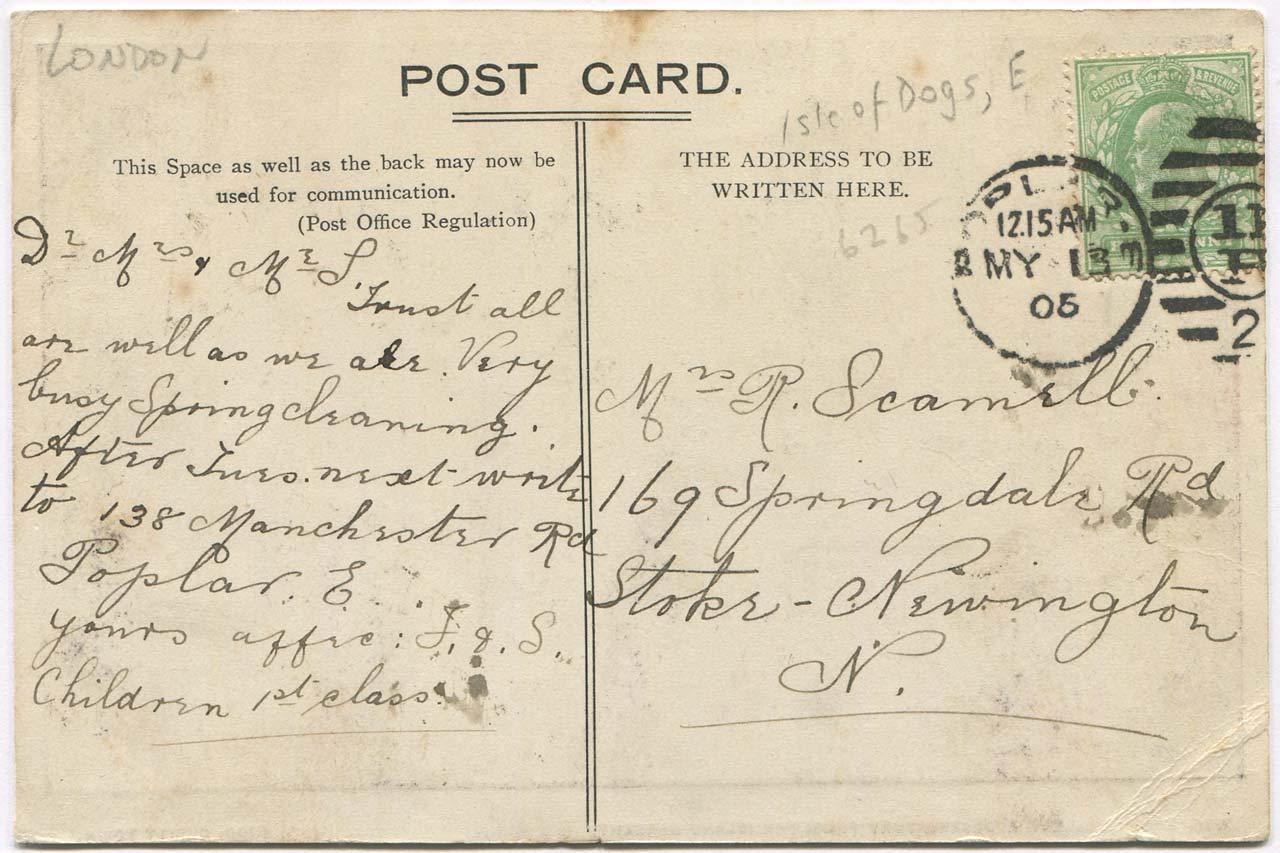 LONDON
POST CARD.
Isle of Dogs, E
This Space as well as the back may now be
used for communication.
(Post Office Regulation)
THE ADDRESS TO BE
WRITTEN HERE.
6265
POSTAGE & REVENUE
12.15 AM
MY 13
11
2
Dr Mrs & Mr S
Trust all
are well as we are. Very
busy Spring cleaning.
After Tues. next write
to 138 Manchester Rd
Poplar. E.
yours affec: F. & S.
Children 1st class.
Mrs R. Scamell.
169 Springdale Rd
Stoke-Newington
N.